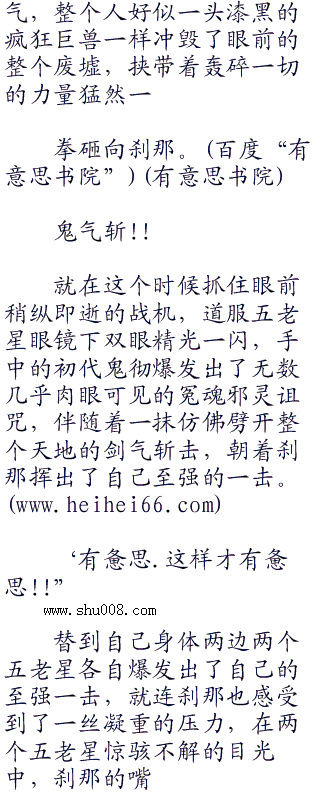 气，整个人好似一头漆黑的
疯狂巨兽一样冲毁了眼前的
整个废墟，挟带着轰碎一切
的力量猛然一
拳砸向刹那。(百度“有
意思书院”)(有意思书院)
鬼气斩!!
就在这个时候抓住眼前
稍纵即逝的战机，道服五老
星眼镜下双眼精光一闪，手
中的初代鬼彻爆发出了无数
几乎肉眼可见的冤魂邪灵诅
咒，伴随着一抹仿佛劈开整
个天地的剑气斩击，朝着刹
那挥出了自己至强的一击。
(www.heihei66.com)
‘有惫思.这样才有惫
思!!”
www.shu008.com
替到自己身体两边两个
五老星各自爆发出了自己的
至强一击，就连刹那也感受
到了一丝凝重的压力，在两
个五老星惊骇不解的目光
中，刹那的嘴